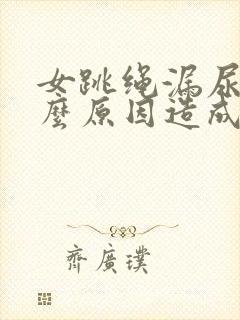 女跳绳漏尿
麼原因造成
齐廣璞